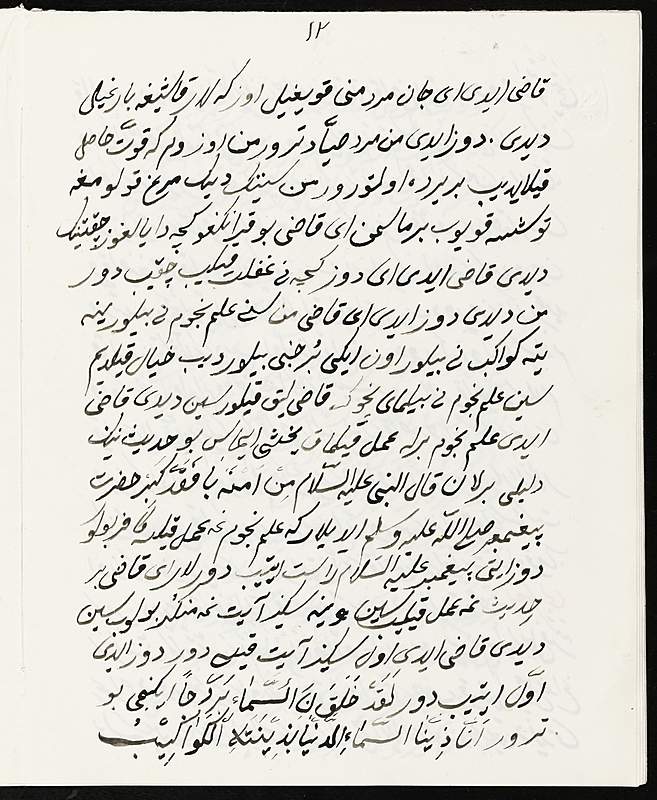 ١٢
قاضی ایدی ای جان مرد منی قویغیل اوزکه لار قاتیغه بارغیل
دیدی . دوز ایدی من مرد صیاد ترور من اوزوم که قوت حاصل
قیلایدیب بر یرده اولتورور من سنینک دیک مرغ قولومغه
توشسه قویوب برماسمن ای قاضی بو قیرانکغو کچه دا یالغوز چقتینک
دیدی قاضی ایدی ای دوز کچه نی غفلت قیلیب چقیب دور
من دیدی دوز ایدی ای قاضی من سنی علم نجوم نی بیلور ینه
یته کواکب نی بیلور اون ایکی برجنی بیلور دیب خیال قیلدیم
سین علم نجوم نی بیلمای نچوک قاضی لیق قیلورسین دیدی قاضی
ایدی علم نجوم برله عمل قیلماق یخشی ایماس بو حدیث نینک
دلیلی برلان قال النبی علیه السلام من امن با فقد کفر حضرت
پیغمبر صلی الله علیه وسلم ایدیلار که علم نجوم غه عمل قیلسه کافر بولور
دوز ایتی پیغمبر علیه السلام راست ایتیب دورلار ای قاضی بر
حدیث غه عمل قیلیب سین و ینه سکیز آیت غه منکر بولوب سین
دیدی قاضی ایدی اول سکیز آیت قیسی دور دوز ایدی
اول ایتیب دور لقد خلقنا السماء بردجا ایکنچی بو
ترور انا زینا السماء الدنیا بزینته الکواکب